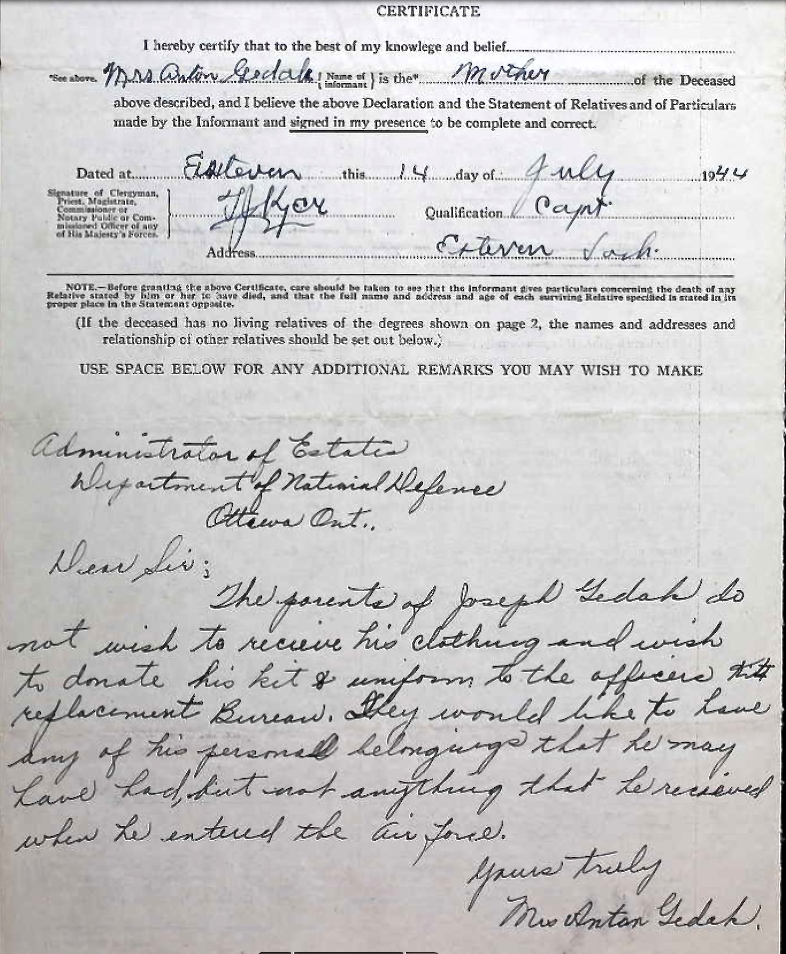 CERTIFICATE
I hereby certify that to the best of my knowlege and belief
*See above. Mrs Anton Gedak { Name of informant } is the* Mother of the Deceased
above described, and I believe the above Declaration and the Statement of Relatives and of Particulars
made by the Informant and signed in my presence to be complete and correct.
Dated at Estevan this 14 day of July 1944
Signature of Clergyman,
Priest, Magistrate,
Commissioner or
Notary Public or Com-
missioned Officer of any
of His Majesty's Forces.
Qualification Capt.
Address Estevan Sask.
NOTE.—Before granting the above Certificate, care should be taken to see that the informant gives particulars concerning the death of any
Relative stated by him or her to have died, and that the full name and address and age of each surviving Relative specified is stated in its
proper place in the Statement opposite.
(If the deceased has no living relatives of the degrees shown on page 2, the names and addresses and
relationship of other relatives should be set out below.)
USE SPACE BELOW FOR ANY ADDITIONAL REMARKS YOU MAY WISH TO MAKE
Administrator of Estates
Department of National Defence
Ottawa Ont.,
Dear Sir;
The parents of Joseph Gedak do
not wish to recieve his clothing and wish
to donate his kit & uniform to the officers
replacement Bureau. They would like to have
any of his personal belongings that he may
have had, but not anything that he recieved
when he entered the air force.
Yours truly
Mrs Anton Gedak.